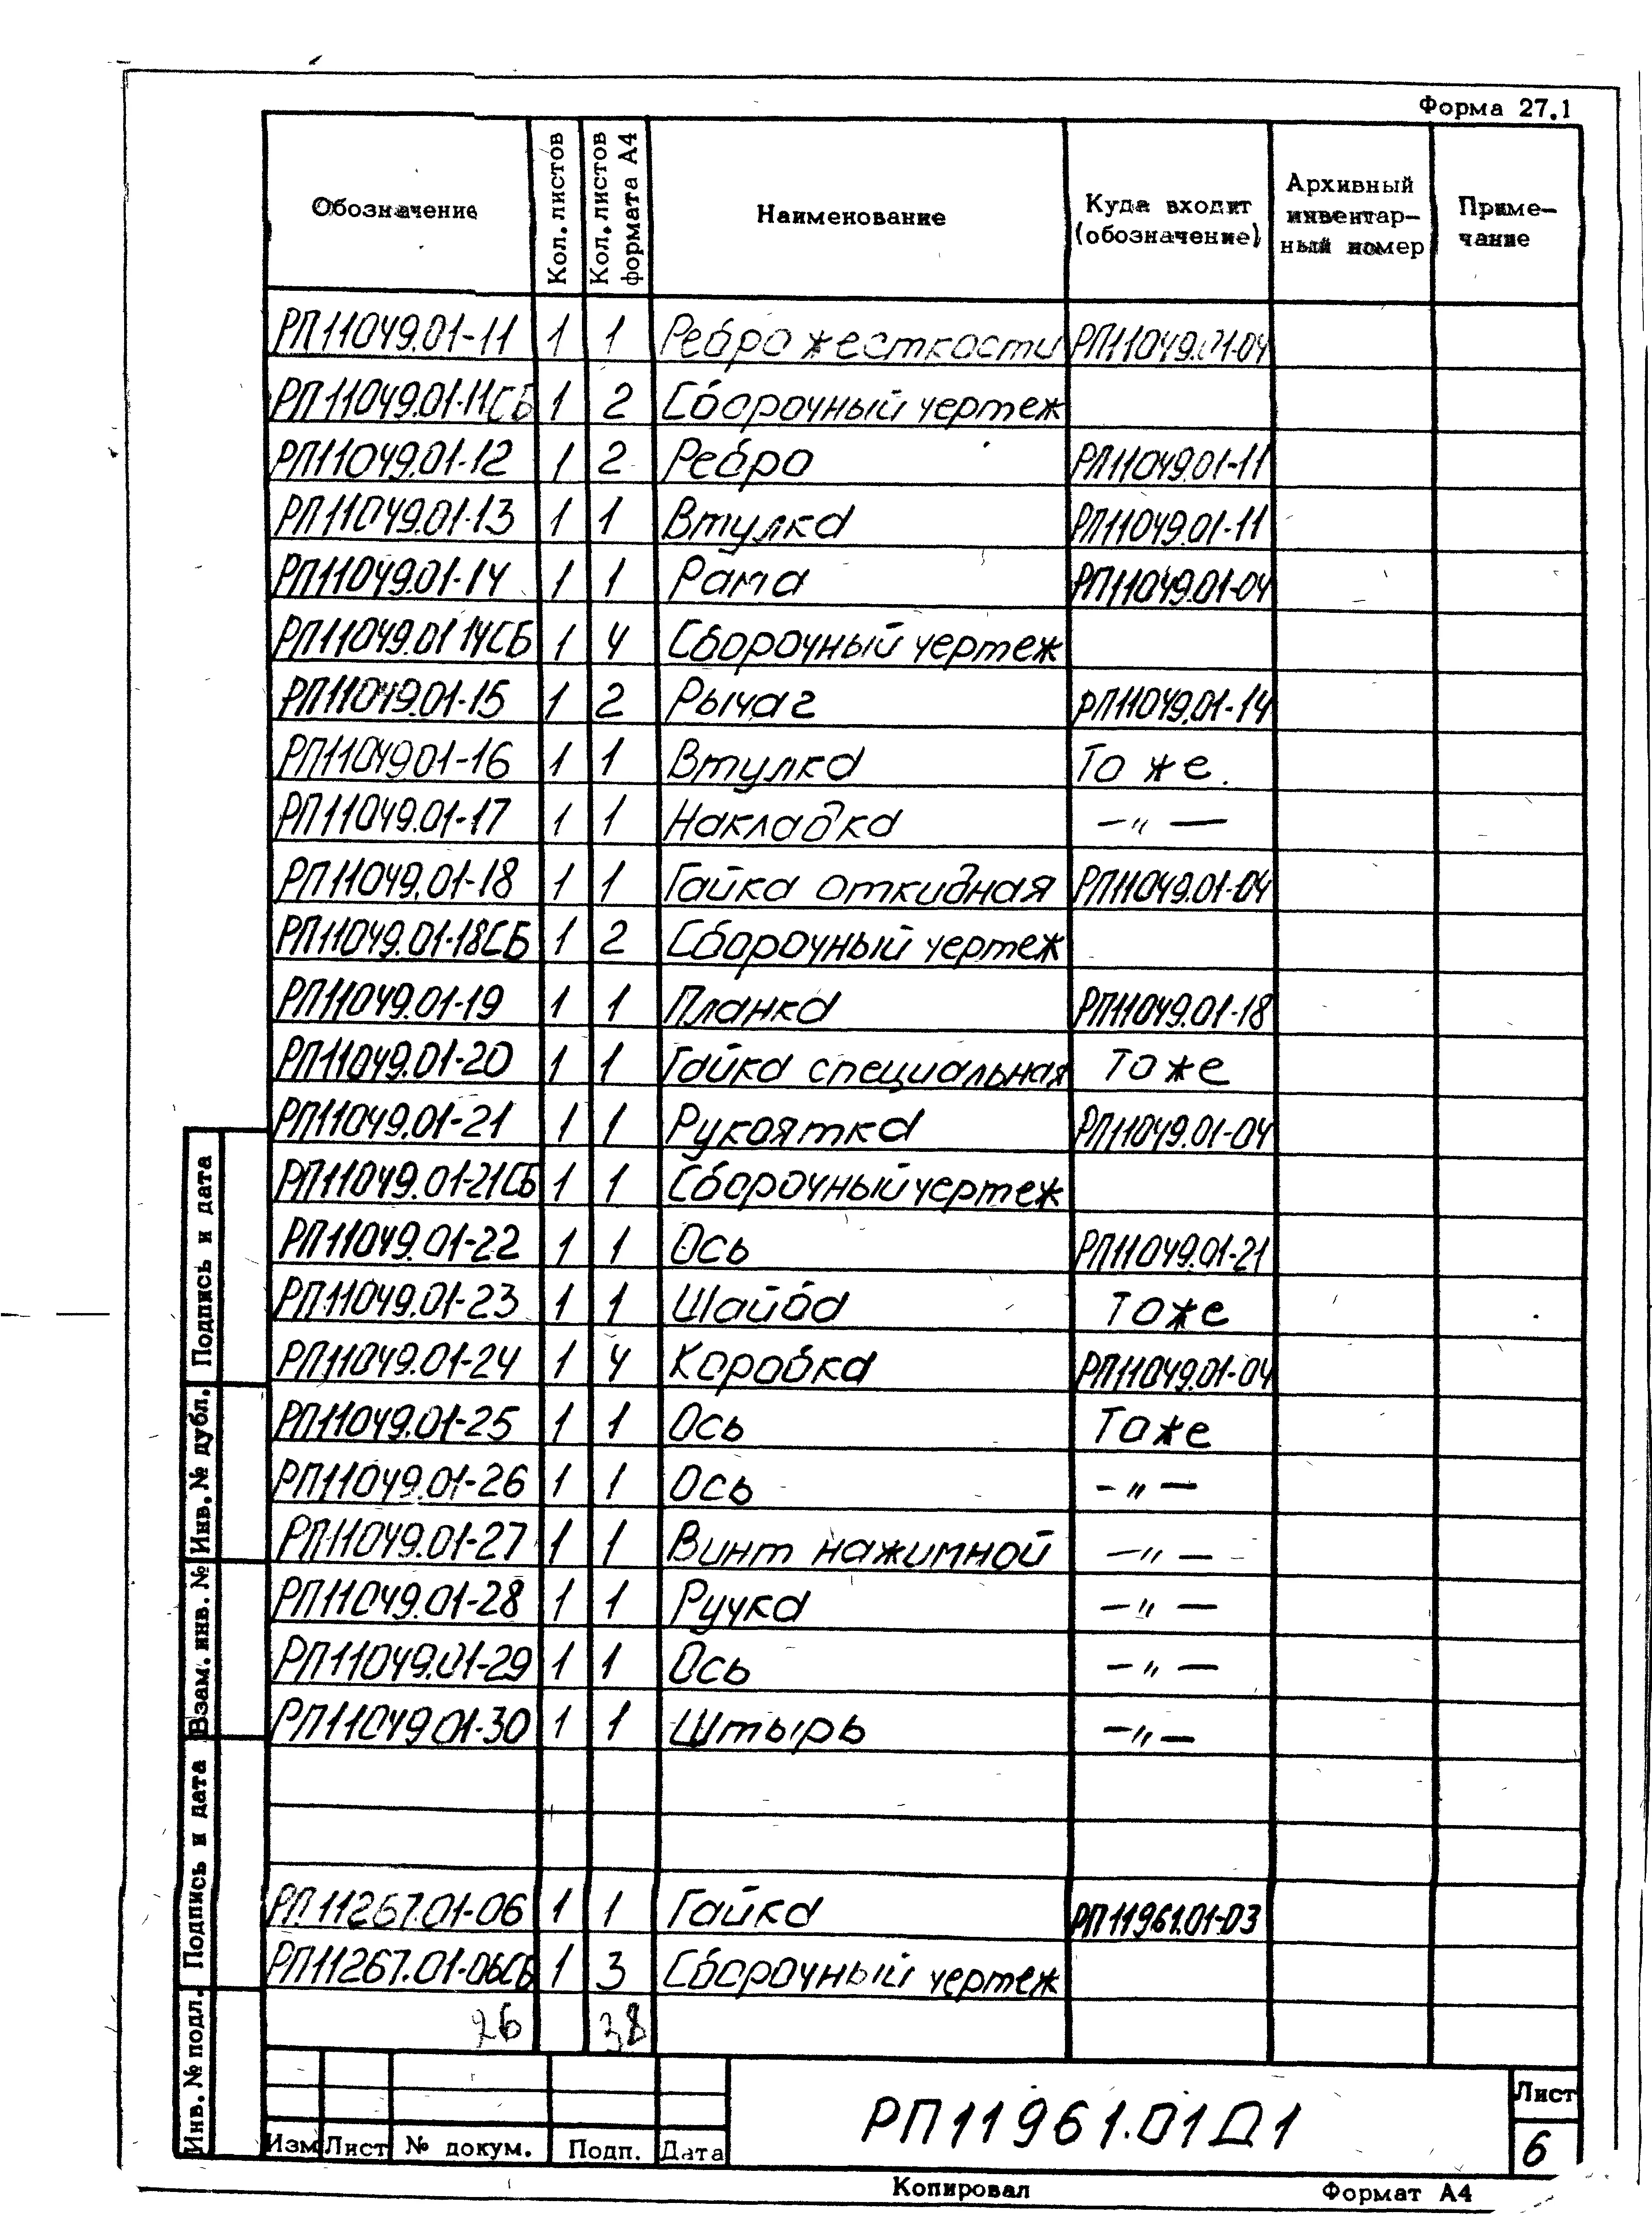 Форма 27.1
Обозначение Кол. листов Кол. листов формата А4 Наименование Куда входит (обозначение) Архивный инвентар- ный номер Приме- чание
РП11049.01-11 1 1 Ребро жесткости РП11049.01-04
РП11049.01-11СБ 1 2 Сборочный чертеж
РП11049.01-12 1 2 Ребро РП11049.01-11
РП11049.01-13 1 1 Втулка РП11049.01-11
РП11049.01-14 1 1 Рама РП11049.01-04
РП11049.01 14СБ 1 4 Сборочный чертеж
РП11049.01-15 1 2 Рычаг РП11049.01-14
РП1104901-16 1 1 Втулка То же.
РП11049.01-17 1 1 Накладка —〃—
РП11049.01-18 1 1 Гайка откидная РП11049.01-04
РП11049.01-18СБ 1 2 Сборочный чертеж
РП11049.01-19 1 1 Планка РП11049.01-18
РП11049.01-20 1 1 Гайка специальная То же
РП11049.01-21 1 1 Рукоятка РП11049.01-04
РП11049.01-21СБ 1 1 Сборочный чертеж
РП11049.01-22 1 1 Ось РП11049.01-21
РП11049.01-23 1 1 Шайба То же
РП11049.01-24 1 4 Коробка РП11049.01-04
РП11049.01-25 1 1 Ось То же
РП11049.01-26 1 1 Ось —〃—
РП11049.01-27 1 1 Винт нажимной —〃—
РП11049.01-28 1 1 Ручка —〃—
РП11049.01-29 1 1 Ось —〃—
РП11049.01-30 1 1 Штырь —〃—
РП.11267.01-06 1 1 Гайка РП11961.01-03
РП11267.01-06СБ 1 3 Сборочный чертеж
26 38
Инв. № подл. Подпись и дата Взам. инв. № Инв. № дубл. Подпись и дата
Изм Лист № докум. Подп. Дата
РП11961.01Д1
Лист
6
Копировал Формат А4